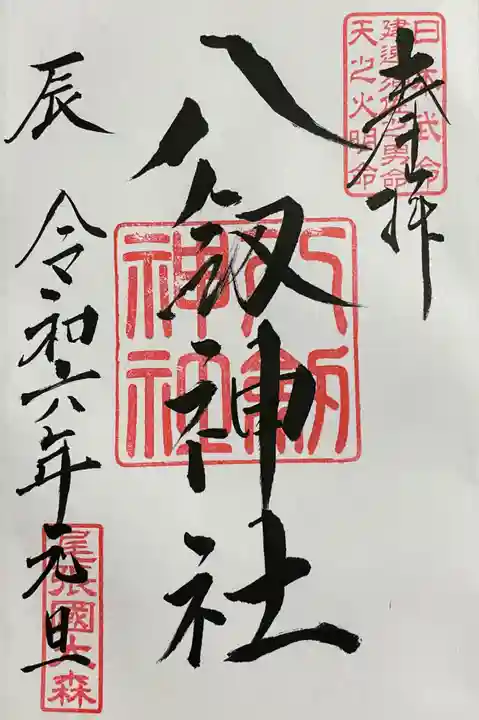 奉拝
日本武命
建速須佐之男命
天之火明命
八剱神社
八剱
神社
辰
令和六年元旦
尾張國大森